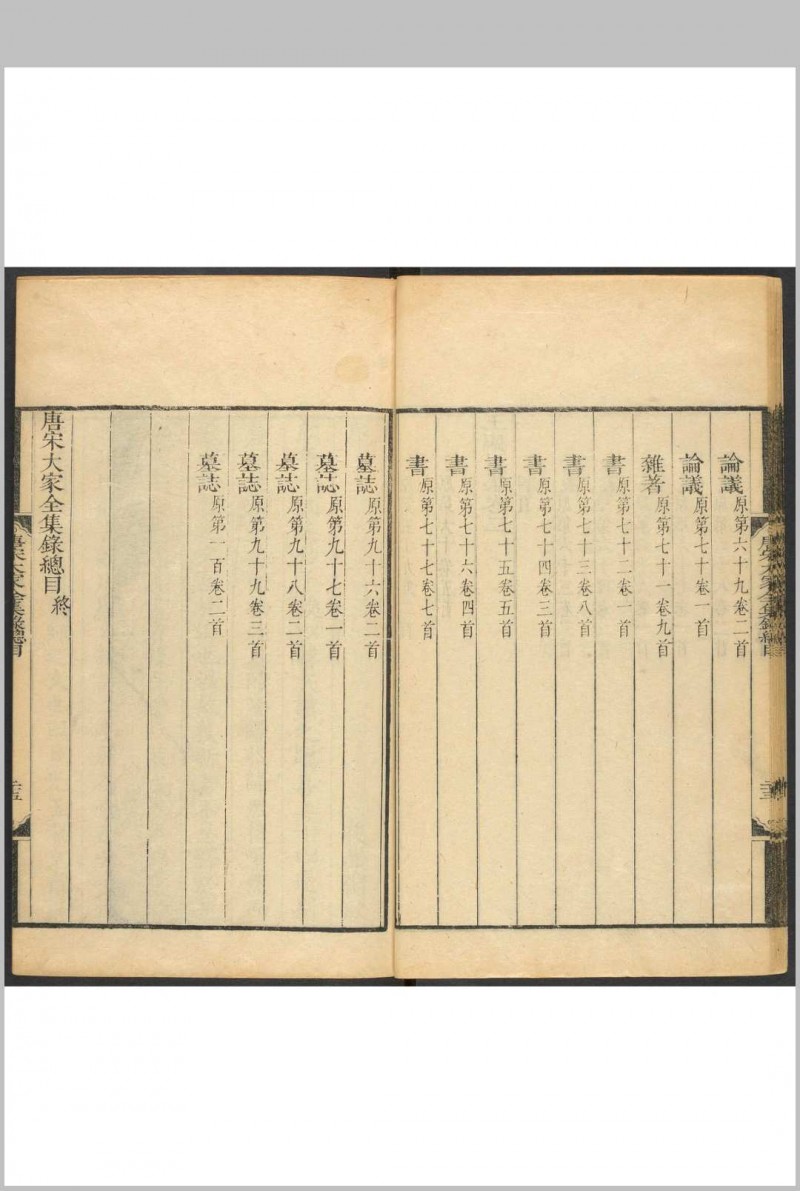 論議原第六十九卷二首
論議原第七十卷一首
雜著原第七十一卷九首
書原第七十二卷一首
書原第七十三卷八首
書原第七十四卷三首
書原第七十五卷五首
書原第七十六卷四首
書原第七十七卷七首
墓誌原第九十六卷二首
墓誌原第九十七卷一首
墓誌原第九十八卷二首
墓誌原第九十九卷三首
墓誌原第一百卷二首
唐宋大家全集錄總目終
唐宋大家全集錄總目